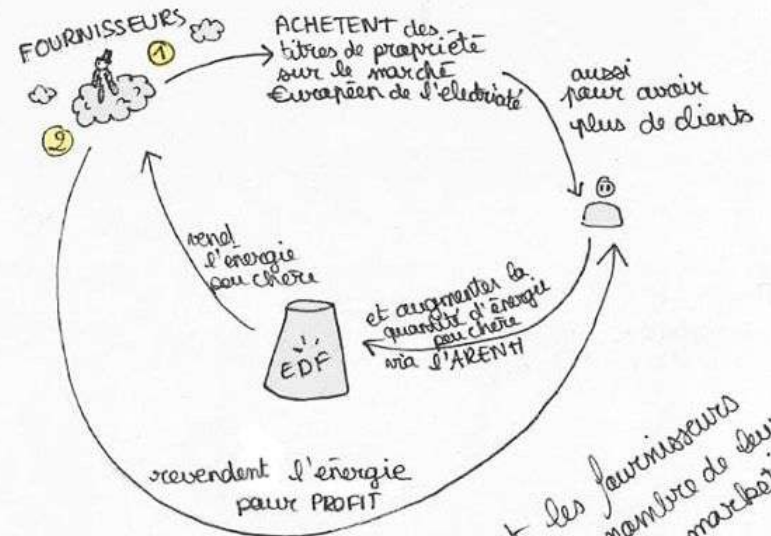 FOURNISSEURS
1
ACHETENT des
titres de propriété
sur le marché
Européen de l'électricité
aussi
pour avoir
plus de clients
2
vend
l'energie
peu chère
EDF
et augmenter la
quantité d'énergie
peu chère
via l'ARENH
revendent l'énergie
pour PROFIT
les fournisseurs
nombre de